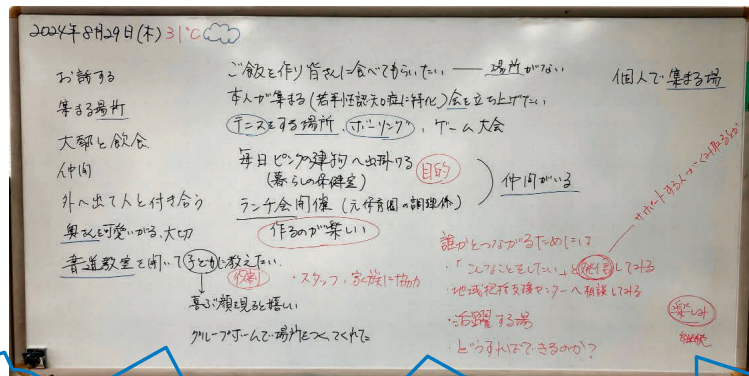 2024年8月29日(木) 31℃
お話する
集まる場所
大都と飲食
仲間
外へ出て人と付き合う
奥さんを可愛いがる、大切
書道教室を開いて子どもに教えたい
役割
・スタッフ、家族に協力
喜ぶ顔を見ると嬉しい
グループホームで場所をつくってくれた
ご飯を作り皆さんに食べてもらいたい ― 場所がない
本人が集まる(若年性認知症に特化)会を立ち上げたい
テニスをする場所、ボーリング、ゲーム大会
毎日ピンクの建物へ出掛ける 目的
(暮らしの保健室)
ランチ会開催(元保育園の調理係)
仲間がいる
作るのが楽しい
個人で集まる場
サポートする人がくみ取るとか
誰かとつながるためには
・「こんなことをしたい」と発信してみる
・地域包括支援センターへ相談してみる
・活躍する場
・どうすればできるのか?
楽しみ
継続